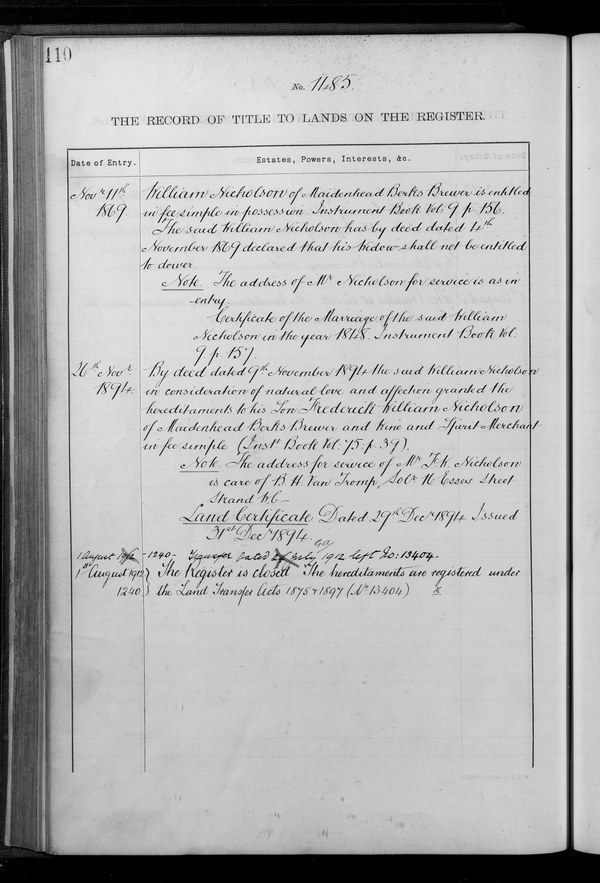 110
No. 1485.
THE RECORD OF TITLE TO LANDS ON THE REGISTER.
Date of Entry. Estates, Powers, Interests, &c.
Novr 11th William Nicholson of Maidenhead Berks Brewer is entitled
1869. in fee simple in possession. Instrument Book Vol: 9 p. 156.
The said William Nicholson has by deed dated 4th
November 1869 declared that his widow shall not be entitled
to dower.
Note. The address of Mr Nicholson for service is as in
entry.
Certificate of the Marriage of the said William
Nicholson in the year 1848. Instrument Book Vol.
9 p 157.
26th Novr By deed dated 9th November 1894 the said William Nicholson
1894. in consideration of natural love and affection granted the
hereditaments to his Son Frederick William Nicholson
of Maidenhead Berks Brewer and Wine and Spirit Merchant
in fee simple (Inst. Book Vol: 75. p. 39).
Note. The address for service of Mr F. W. Nicholson
is care of B. H. Van Tromp, Solr 16 Essex Street
Strand W.C.
Land Certificate Dated 29th Decr 1894 Issued
31st Decr 1894.
1 August 1912 - 1240 - Transfer dated July 1912 left No: 13404.
1st August 1912 } The Register is closed The hereditaments are registered under
1240 } the Land Transfer Acts 1875 & 1897 (No 13404)